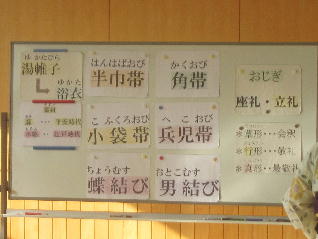 ゆかたびら
湯帷子
ゆかた
浴衣
はんはばおび
半巾帯
かくおび
角帯
こふくろおび
小袋帯
へこおび
兵児帯
ちょうむす
蝶結び
おとこむす
男結び
おじぎ
座礼・立礼
草形・・・会釈
行形・・・敬礼
真形・・最敬礼